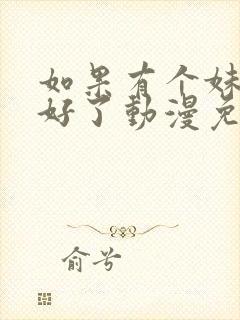 如果有个妹
好了動漫免
俞兮